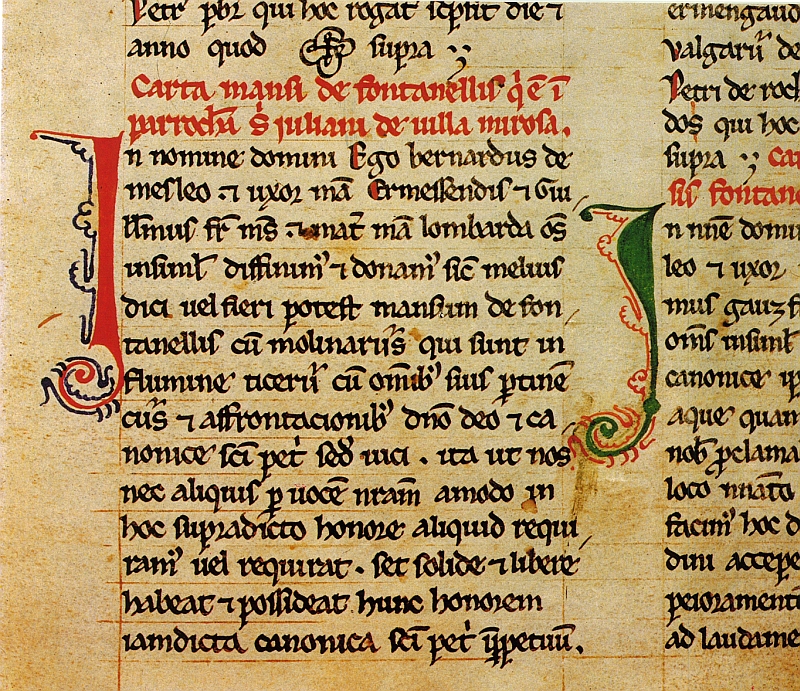 Petr pbr qui hoc rogat scpsit die ⁊
anno quod supra
Carta mansi de fontanellis q̇ ē ī
parrochī S̄ iuliani de uilla mirosa.
In nomine domini Ego bernardus de
mesleo ⁊ uxor mā Ermessendis ⁊ Gui
llm̄us fr̄ m̄s ⁊ mat̄ mā lombarda os̄
insiml̄ diffinim᾽ ⁊ donam᾽ sic̄ melius
dici uel fieri potest mansum de fon
tanellis cū molinariis qui sunt in
flumine ticerii cū om̄ib᾽ suis ꝑtinē
ciis ⁊ affrontacionib᾽ dn̄o deo ⁊ ca
nonice sc̄i pet̄ sed̄ uici . ita ut nos
nec aliquis ꝑ uocē nr̄am amodo in
hoc supradicto honore aliquid requi
ram᾽ uel requirat . set solide ⁊ libere
habeat ⁊ possideat hunc honorem
iamdicta canonica sc̄i pet̄ īꝑpetuū.
ermengaud
valgarii de
Petri de roch
dos qui hoc
supra Car
sis fontane
In nn̄e domi
leo ⁊ uxor
mus gauz f
om̄s insiml̄
canonice ip
aque quam
nob̄ ꝓclama
loco
facim᾽ hoc d
dini accepe
peioramenti
ad laudame